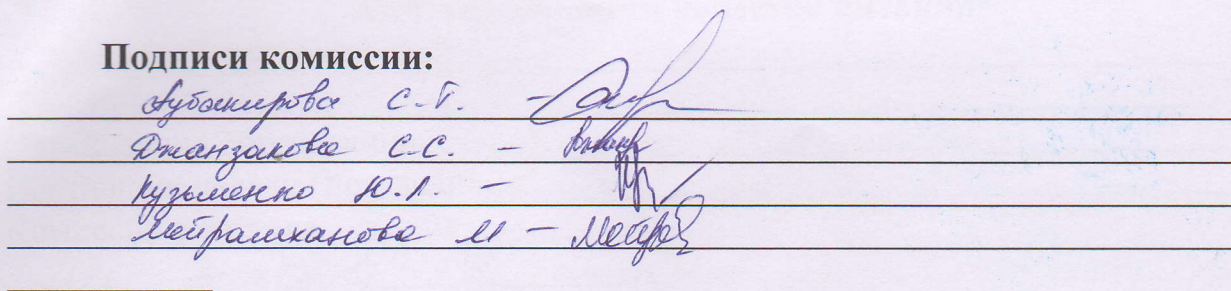 Подписи комиссии:
Аубакирова С.Т. –
Джанзакова С.С. –
Кузьменко Ю.Л. –
Мейрамханова М –